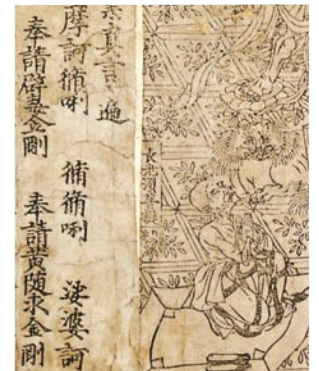 長老須菩提
業真言遍
摩訶脩唎 脩脩唎 娑婆訶
奉請辟毒金剛 奉請黃隨求金剛